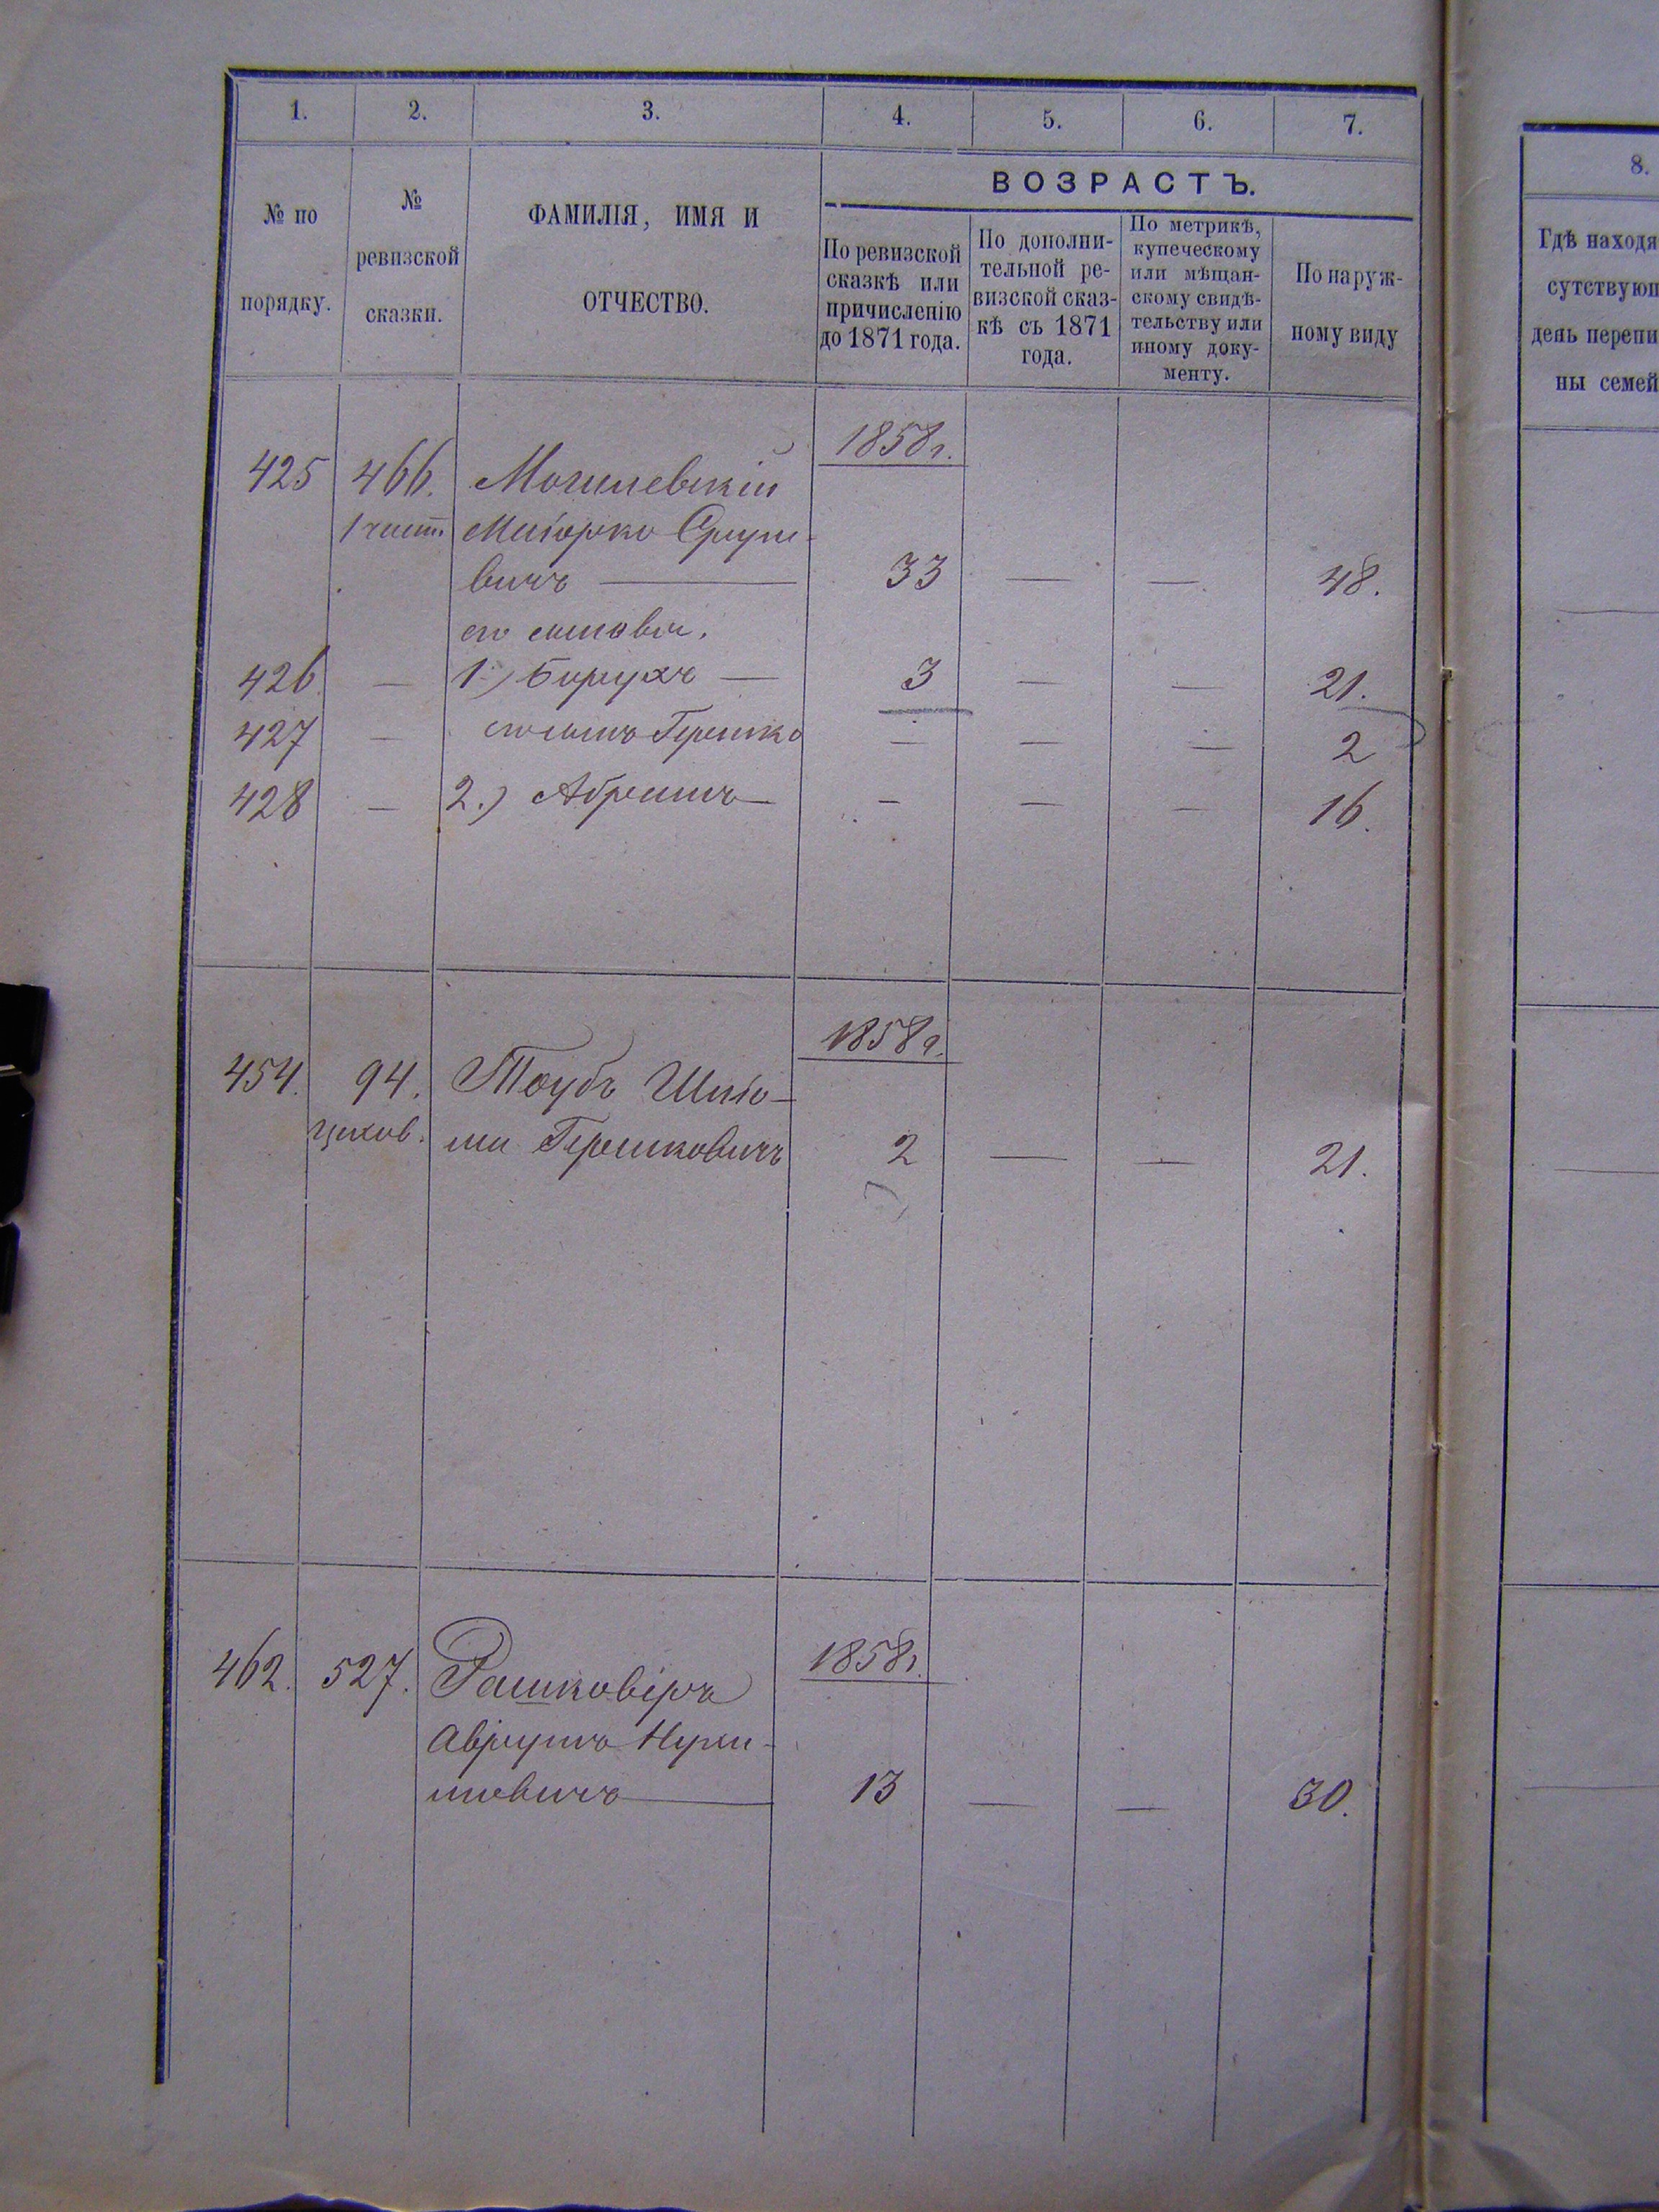 1. 2. 3. 4. 5. 6. 7.
№ по порядку.
№ ревизской сказки.
ФАМИЛІЯ, ИМЯ И
ОТЧЕСТВО.
ВОЗРАСТЪ.
По ревизской
сказкѣ или
причисленію
до 1871 года.
По дополни-
тельной ре-
визской сказ-
кѣ съ 1871
года.
По метрикѣ,
купеческому
или мѣщан-
скому свидѣ-
тельству или
иному доку-
менту.
По наруж-
ному виду
1858 г.
425 466. Могилевскій
Мошко
вичъ — 33 — — 48.
его сыновья.
426 — 1.) Борухъ — 3 — — 21.
427 — его сынъ Гершко — — — 2
428 — 2.) Абрамъ — — — — 16.
1858 г.
454. 94. Таубъ Шлio-
ма Гершковичъ 2 — — 21.
1858 г.
462. 527. Рашковіръ
Аврумъ Нухи-
мовичъ — 13 — — 30.
8.
Гдѣ находя
сутствующ
день перепи
ны семей